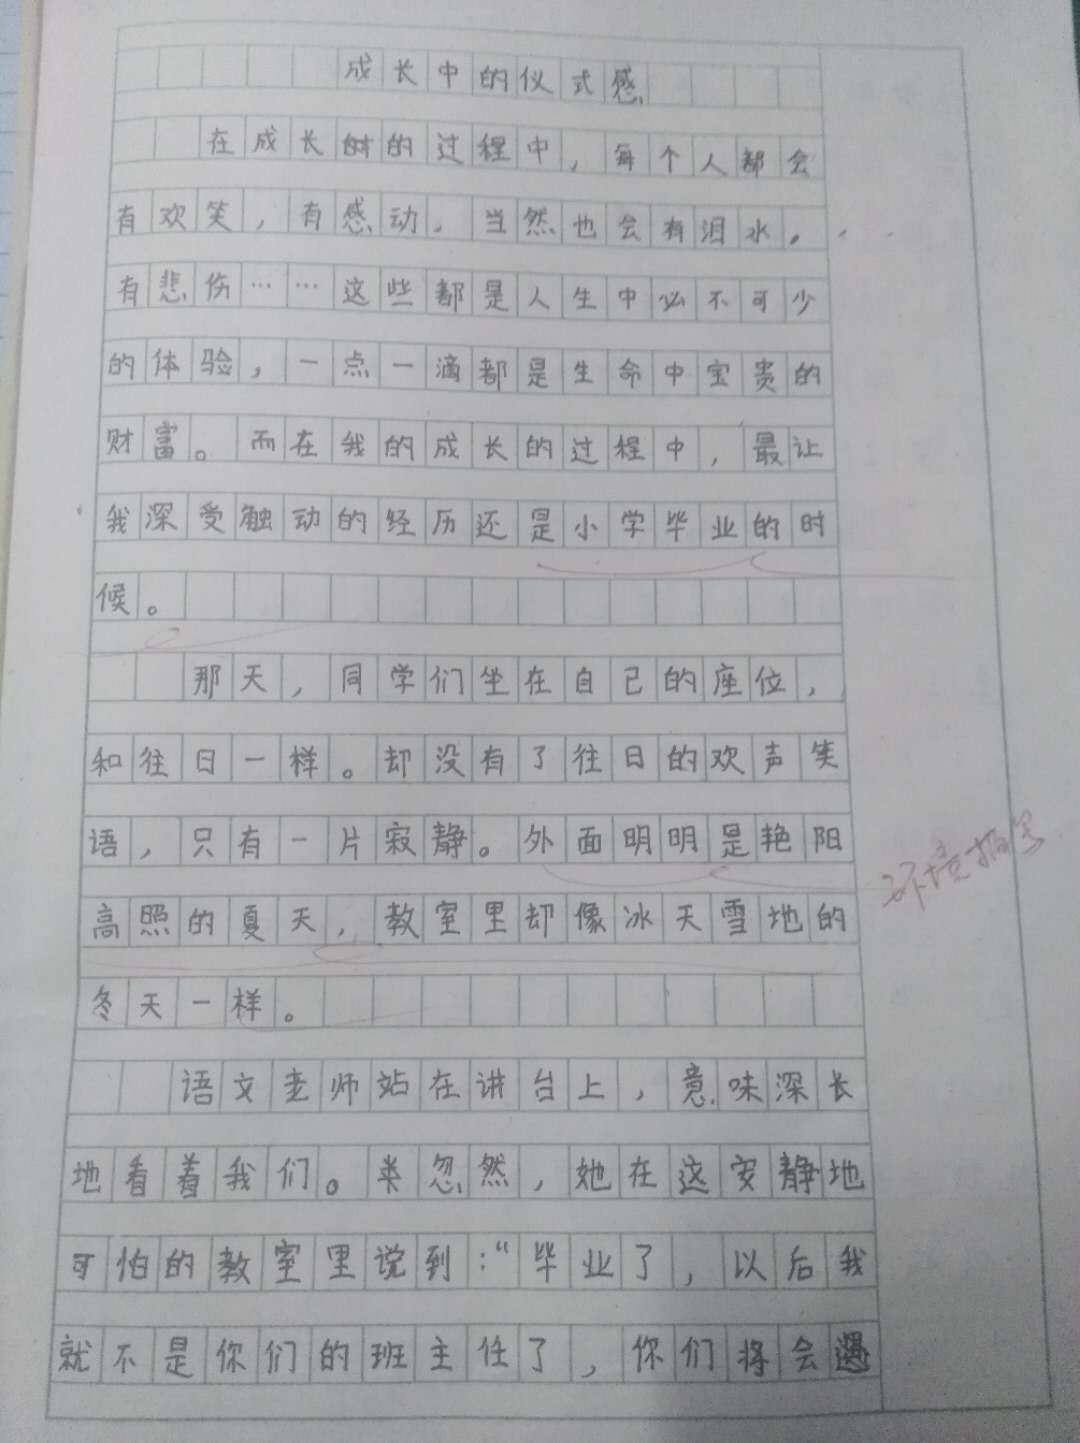 成长中的仪式感
在成长时的过程中，每个人都会
有欢笑，有感动，当然也会有泪水，
有悲伤……这些都是人生中必不可少
的体验，一点一滴都是生命中宝贵的
财富。而在我的成长的过程中，最让
我深受触动的经历还是小学毕业的时
候。
那天，同学们坐在自己的座位，
和往日一样。却没有了往日的欢声笑
语，只有一片寂静。外面明明是艳阳
高照的夏天，教室里却像冰天雪地的
冬天一样。
环境描写
语文老师站在讲台上，意味深长
地看着我们。忽然，她在这安静地
可怕的教室里说到：“毕业了，以后我
就不是你们的班主任了，你们将会遇